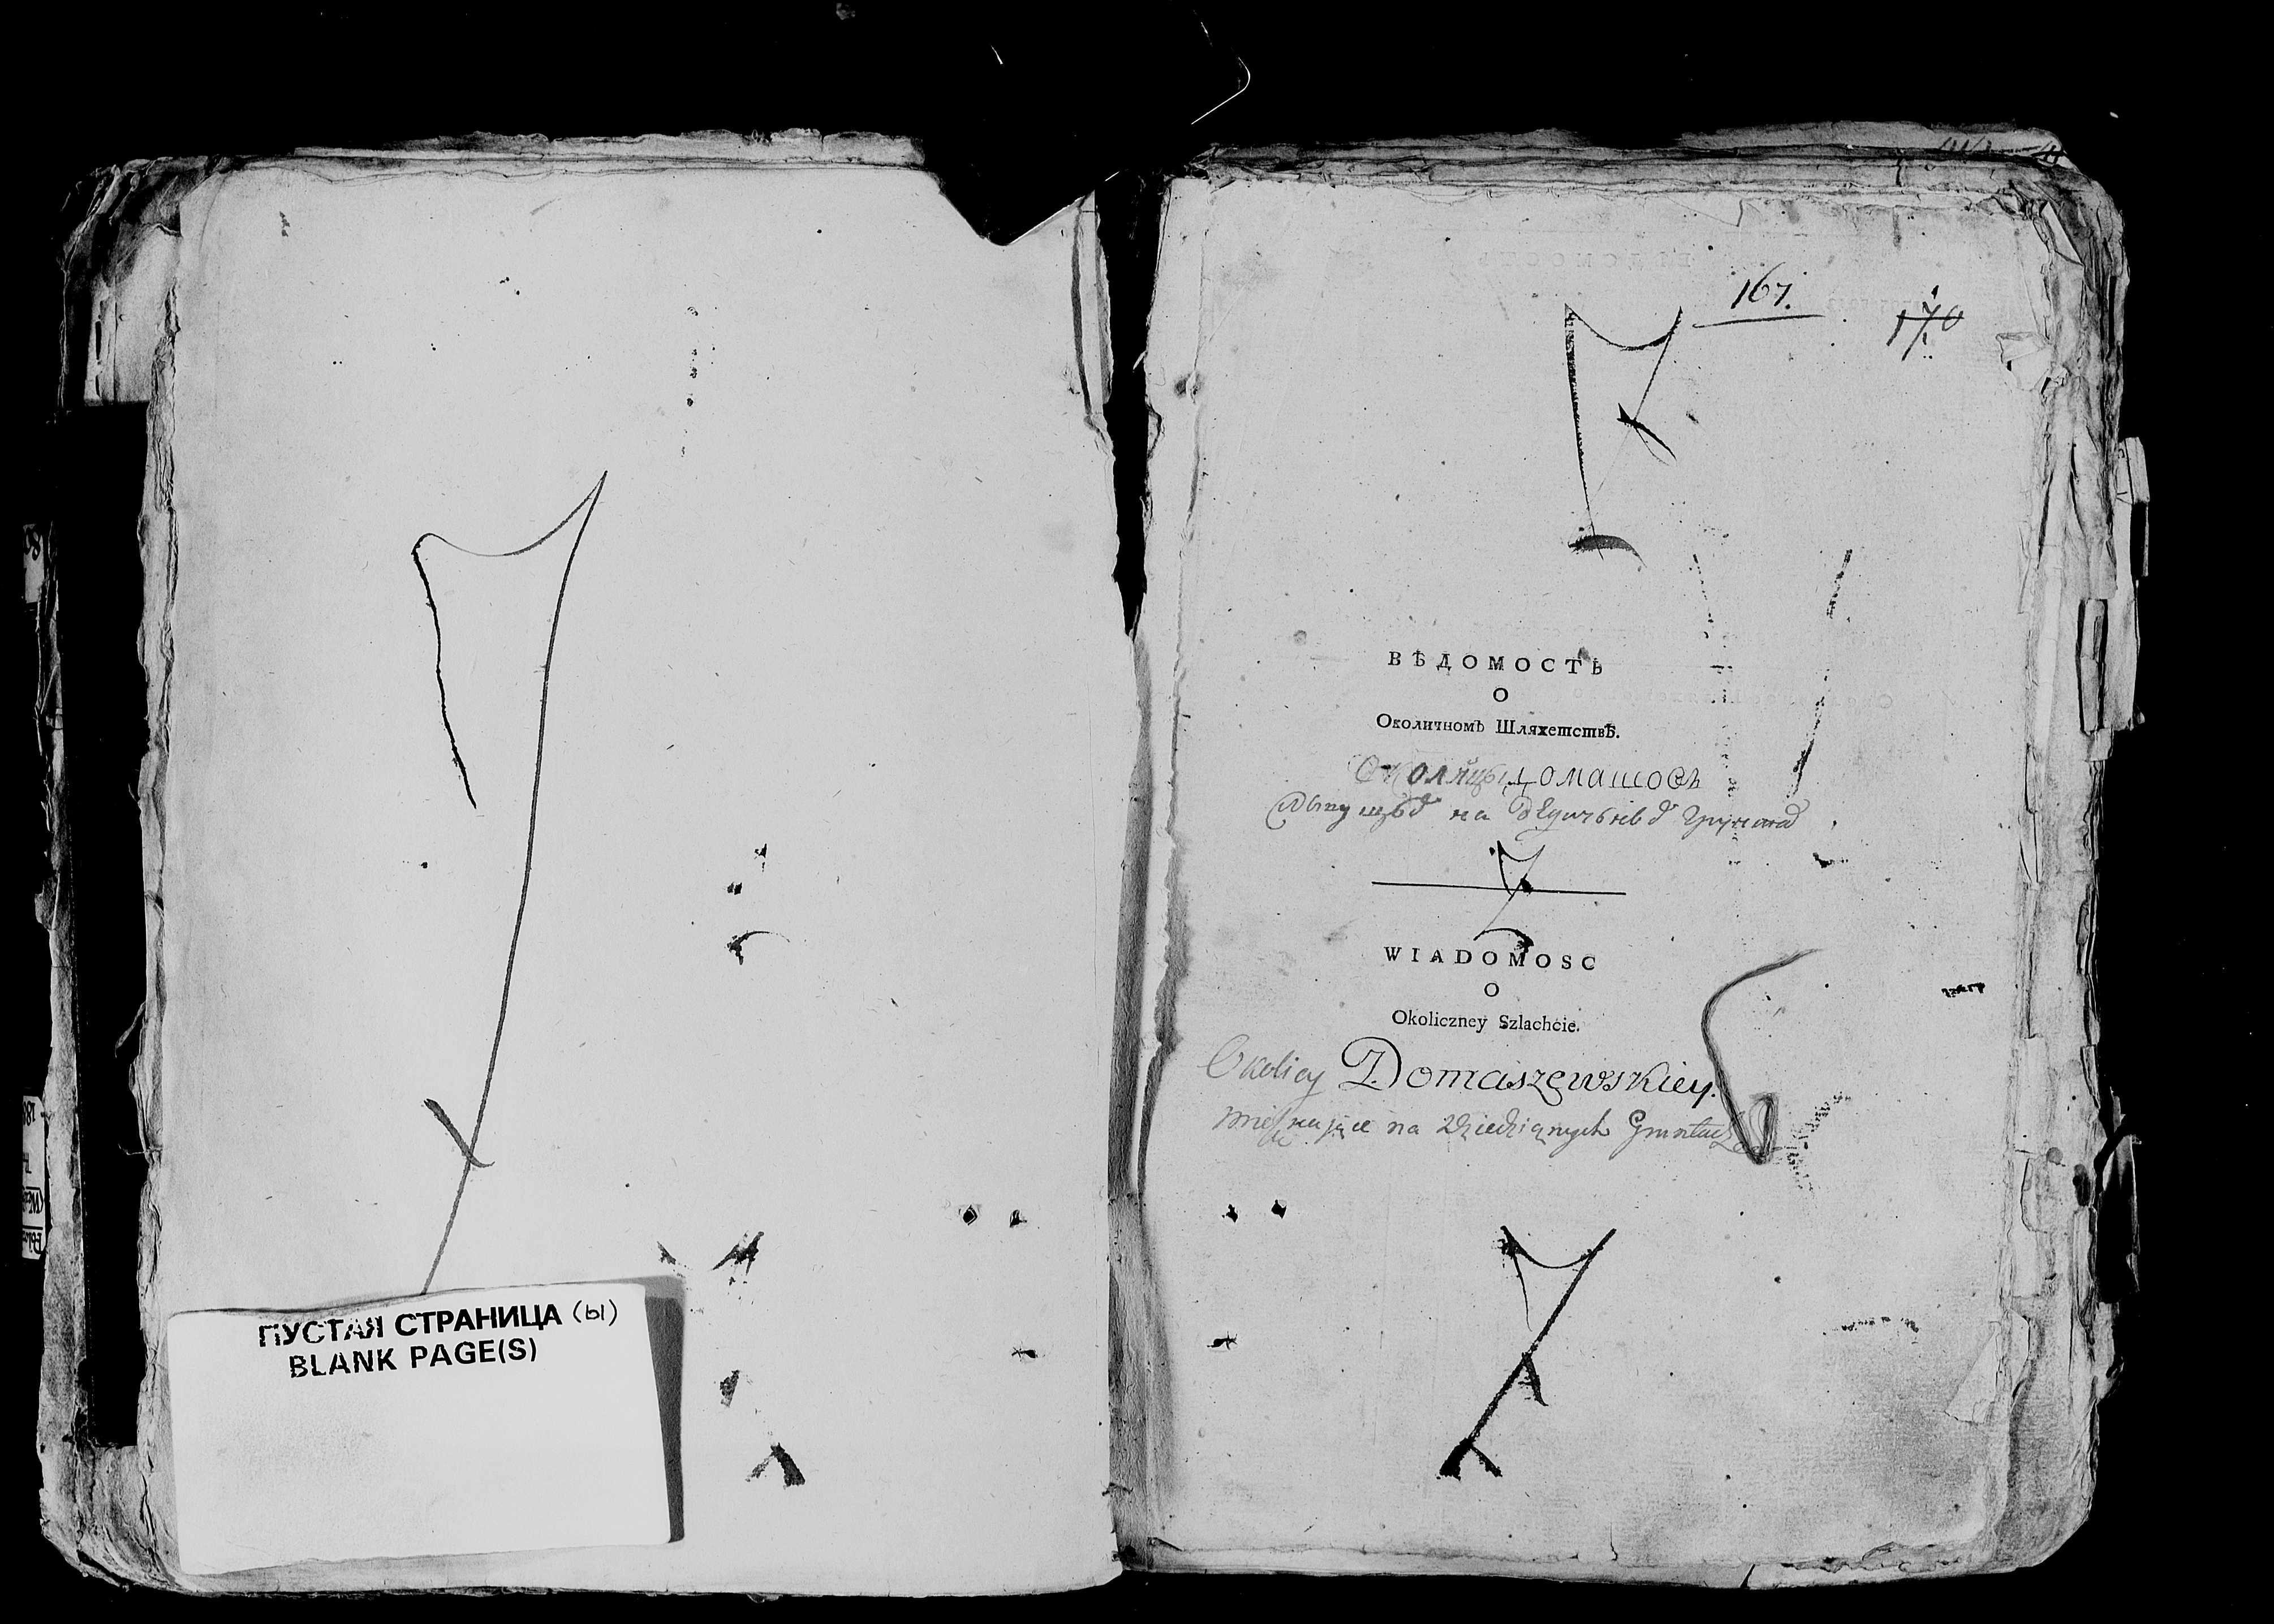 ПУСТАЯ СТРАНИЦА (ы)
BLANK PAGE(S)
167.
170
ВѢДОМОСТЬ
О
Околичномъ Шляхетствѣ.
Околицы
на
WIADOMOSC
O
Okoliczney Szlachcie.
Okolicy Domaszewskiey.
na Dziedziznych Gruntach